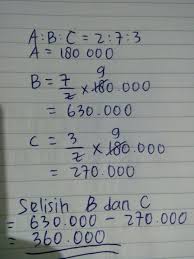 A:B:C = 2:7:3
A = 180.000
B = 7/2 × 180.000 9
= 630.000
C = 3/2 × 180.000 9
= 270.000
Selisih B dan C
= 630.000 - 270.000
= 360.000